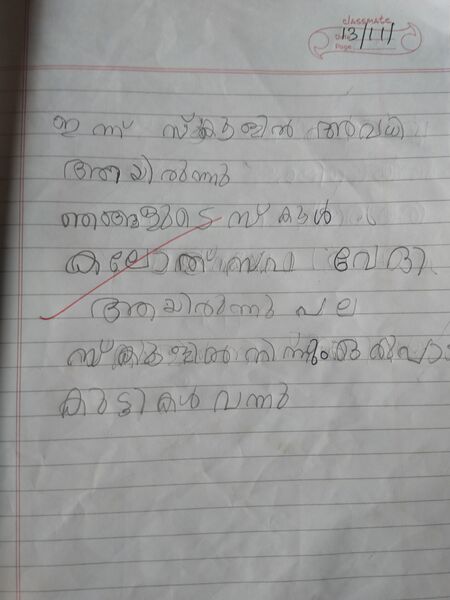 classmate
Date 13/11/
Page
ഇന്ന് സ്കൂളിൽ അവധി
ആയിരുന്നു
ഞങ്ങളുടെ സ്കൂൾ
കലോത്സവ വേദി
ആയിരുന്നു പല
സ്കൂളിൽ നിന്നും
കുട്ടികൾ വന്നു